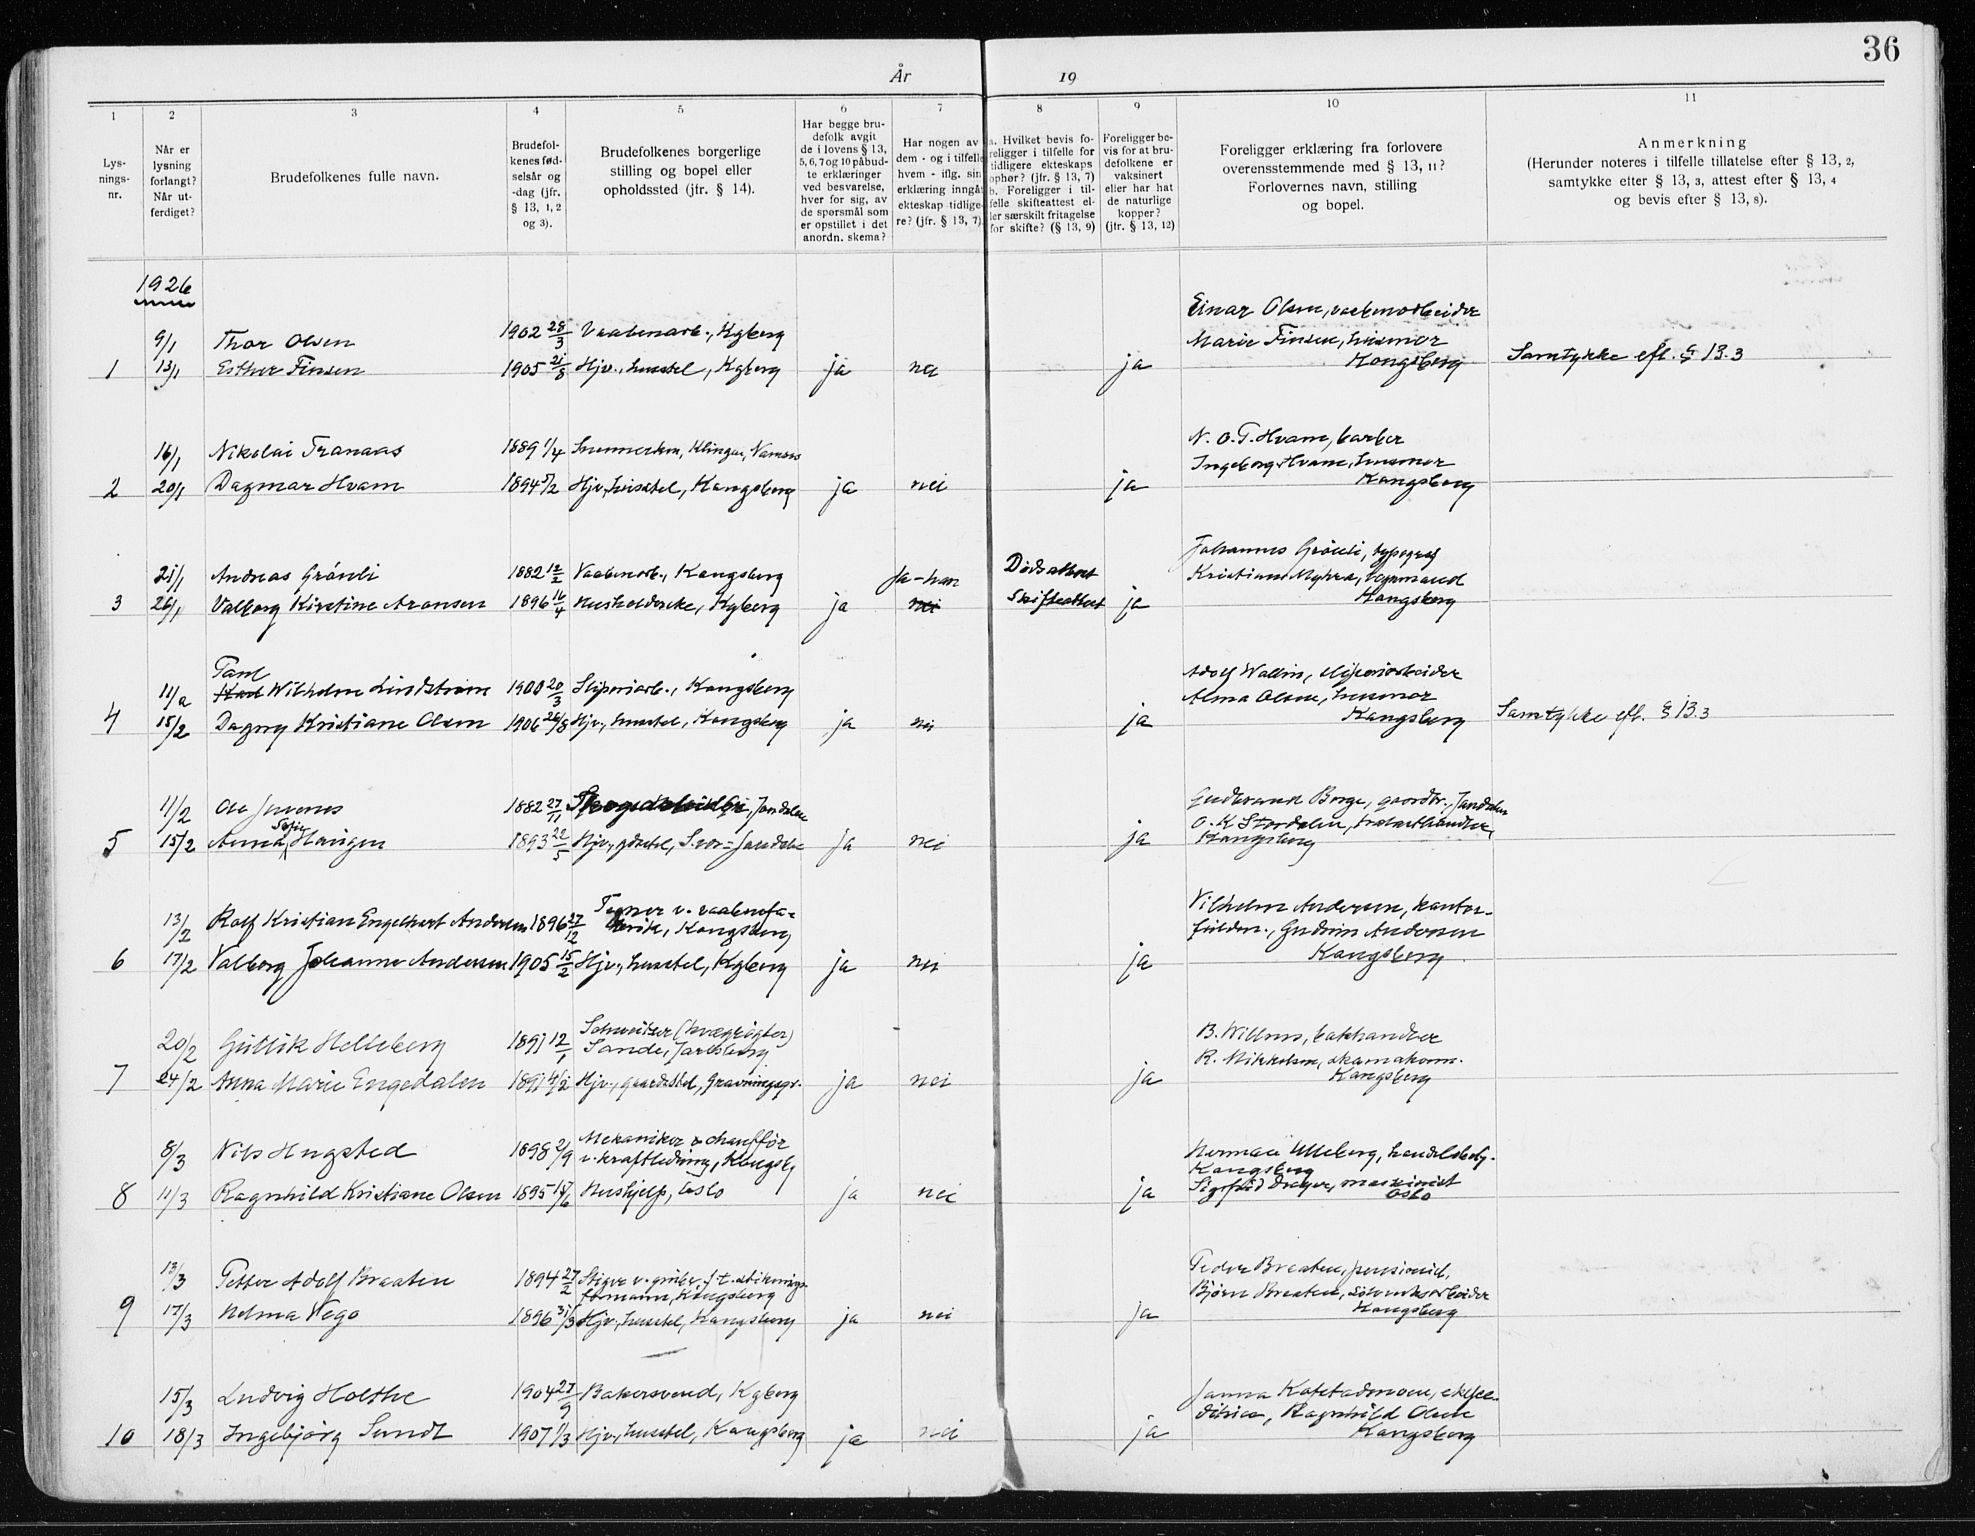 36
År 19
1 2 3 4 5 6 7 8 9 10 11
Lysnings-nr.
Når er lysning forlangt? Når utferdiget?
Brudefolkenes fulle navn.
Brudefolkenes fødselsår og -dag (jfr. § 13, 1, 2 og 3).
Brudefolkenes borgerlige stilling og bopel eller opholdssted (jfr. § 14).
Har begge brudefolk avgit de i lovens § 13, 5, 6, 7 og 10 påbudte erklæringer ved besvarelse, hver for sig, av de spørsmål som er opstillet i det anordn. skema?
Har nogen av dem - og i tilfelle hvem - iflg. sin erklæring inngått ekteskap tidligere? (jfr. § 13, 7)
a. Hvilket bevis foreligger i tilfelle for tidligere ekteskaps ophør? (jfr. § 13, 7) b. Foreligger i tilfelle skifteattest eller særskilt fritagelse for skifte? (§ 13, 9)
Foreligger bevis for at brudefolkene er vaksinert eller har hat de naturlige kopper? (jfr. § 13, 12)
Foreligger erklæring fra forlovere overensstemmende med § 13, 11? Forlovernes navn, stilling og bopel.
Anmerkning (Herunder noteres i tilfelle tillatelse efter § 13, 2, samtykke efter § 13, 3, attest efter § 13, 4 og bevis efter § 13, 8).
1926
Einar Olsen, vaabenarbeider
9/1 Thor Olsen 1902 28/3 Vaabenarb., Kgberg
Marie Finsen, husmor
1 13/1 Esther Finsen 1905 21/8 Hjv., husstel, Kgberg ja nei ja Kongsberg Samtykke efl. § 13.3
N. O. T. Hvam, barber
16/1 Nikolai Tranaas 1889 1/4 Klingen, Namsos
Ingeborg Hvam, husmor
2 20/1 Dagmar Hvam 1894 5/2 Hjv., husstel, Kongsberg ja nei ja Kongsberg
Johannes Grönli, typograf
21/1 Andreas Grönli 1882 12/2 Vaabenarb., Kongsberg Ja-han Dödsattest
Kristian Myhra, bygmand
3 26/1 Valborg Kirstine Aronsen 1896 16/4 Husholderske, Kgberg ja nei Skifteattest ja Kongsberg
Paul
Adolf Wallin, sliperiarbeider
11/2 Karl Wilhelm Lindström 1900 20/3 Sliperiarb., Kongsberg
Alma Olsen, husmor
4 15/2 Dagny Kristiane Olsen 1906 26/8 Hjv., husstel, Kongsberg ja nei ja Kongsberg Samtykke efl. § 13.3
Gudbrand Borge, gaardbr., Jondalen
11/2 Ole Juvenes 1882 27/11 Skogsarbeider, Jondalen
O. K. Stordalen, trelasthandler,
Sofie
5 15/2 Anna Haugen 1893 22/5 Hjv., gdsstel, Jondalen ja nei ja Kongsberg
Vilhelm Andersen, kontor-
Tegner v. vaabenfa-
13/2 Rolf Kristian Engelhart Andersen 1896 27/12 brik, Kongsberg
fuldm., Gudrun Andersen
6 17/2 Valborg Johanne Andersen 1905 15/2 Hjv., husstel, Kgberg ja nei ja Kongsberg
Schweitser (kvægrögter)
B. Willums, bokhandler
20/2 Gullik Helleberg 1891 12/1 Sande, Jarlsberg
R. Mikkelsen, skomakerm.
7 24/2 Anna Marie Engedalen 1891 4/2 Hjv., gaardsstel, Gravningsgr. ja nei ja Kongsberg
Mekaniker & chauffør
8/3 Nils Hugsted 1898 2/9 v. kraftledning, Kongsb.
Herman Ulleberg, handelsbetj.
Kongsberg
8 11/3 Ragnhild Kristiane Olsen 1895 Hushjelp, Oslo ja nei ja Sigfrid Dreyer, maskinist
Oslo
Peder Braaten, pensionist,
13/3 Petter Adolf Braaten 1894 27/2 Stiger v. gruber, f. t. stiknings-
formann, Kongsberg
Björn Braaten, sölvverksarbeider
9 17/3 Helma Wego 1896 31/3 Hjv., husstel, Kongsberg ja nei ja Kongsberg
15/3 Ludvig Holthe 1904 27/9 Bakersvend, Kgberg
Janna Kopstadmoen, ekspe-
ditrice, Ragnhild Olsen
10 18/3 Ingebjörg Sundt 1907 1/3 Hjv., husstel, Kongsberg ja nei ja Kongsberg